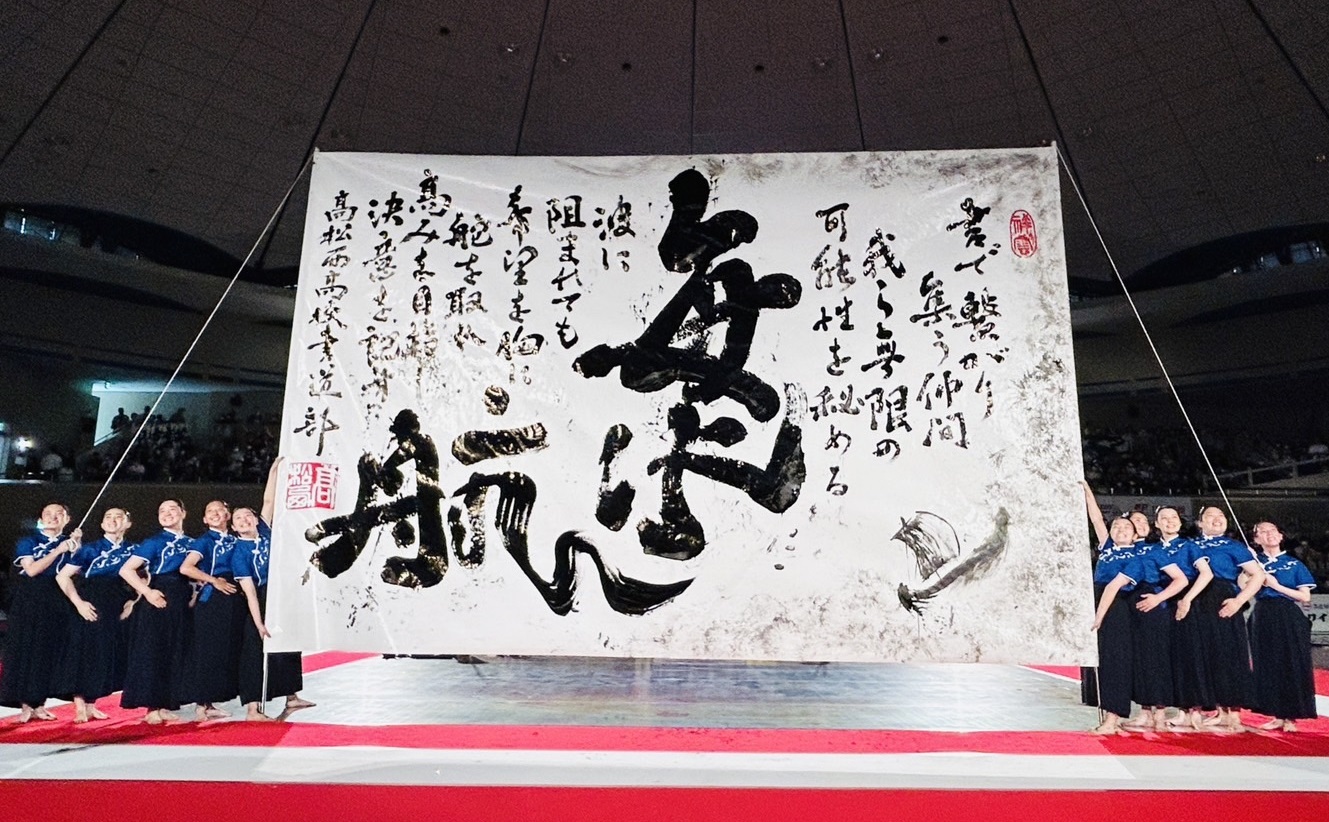 書で繋がり
集う仲間
我ら無限の
可能性を秘める
航
波に
阻まれても
希望を胸に
舵を取り
高みを目指す
決意を
高松西高校書道部
高松